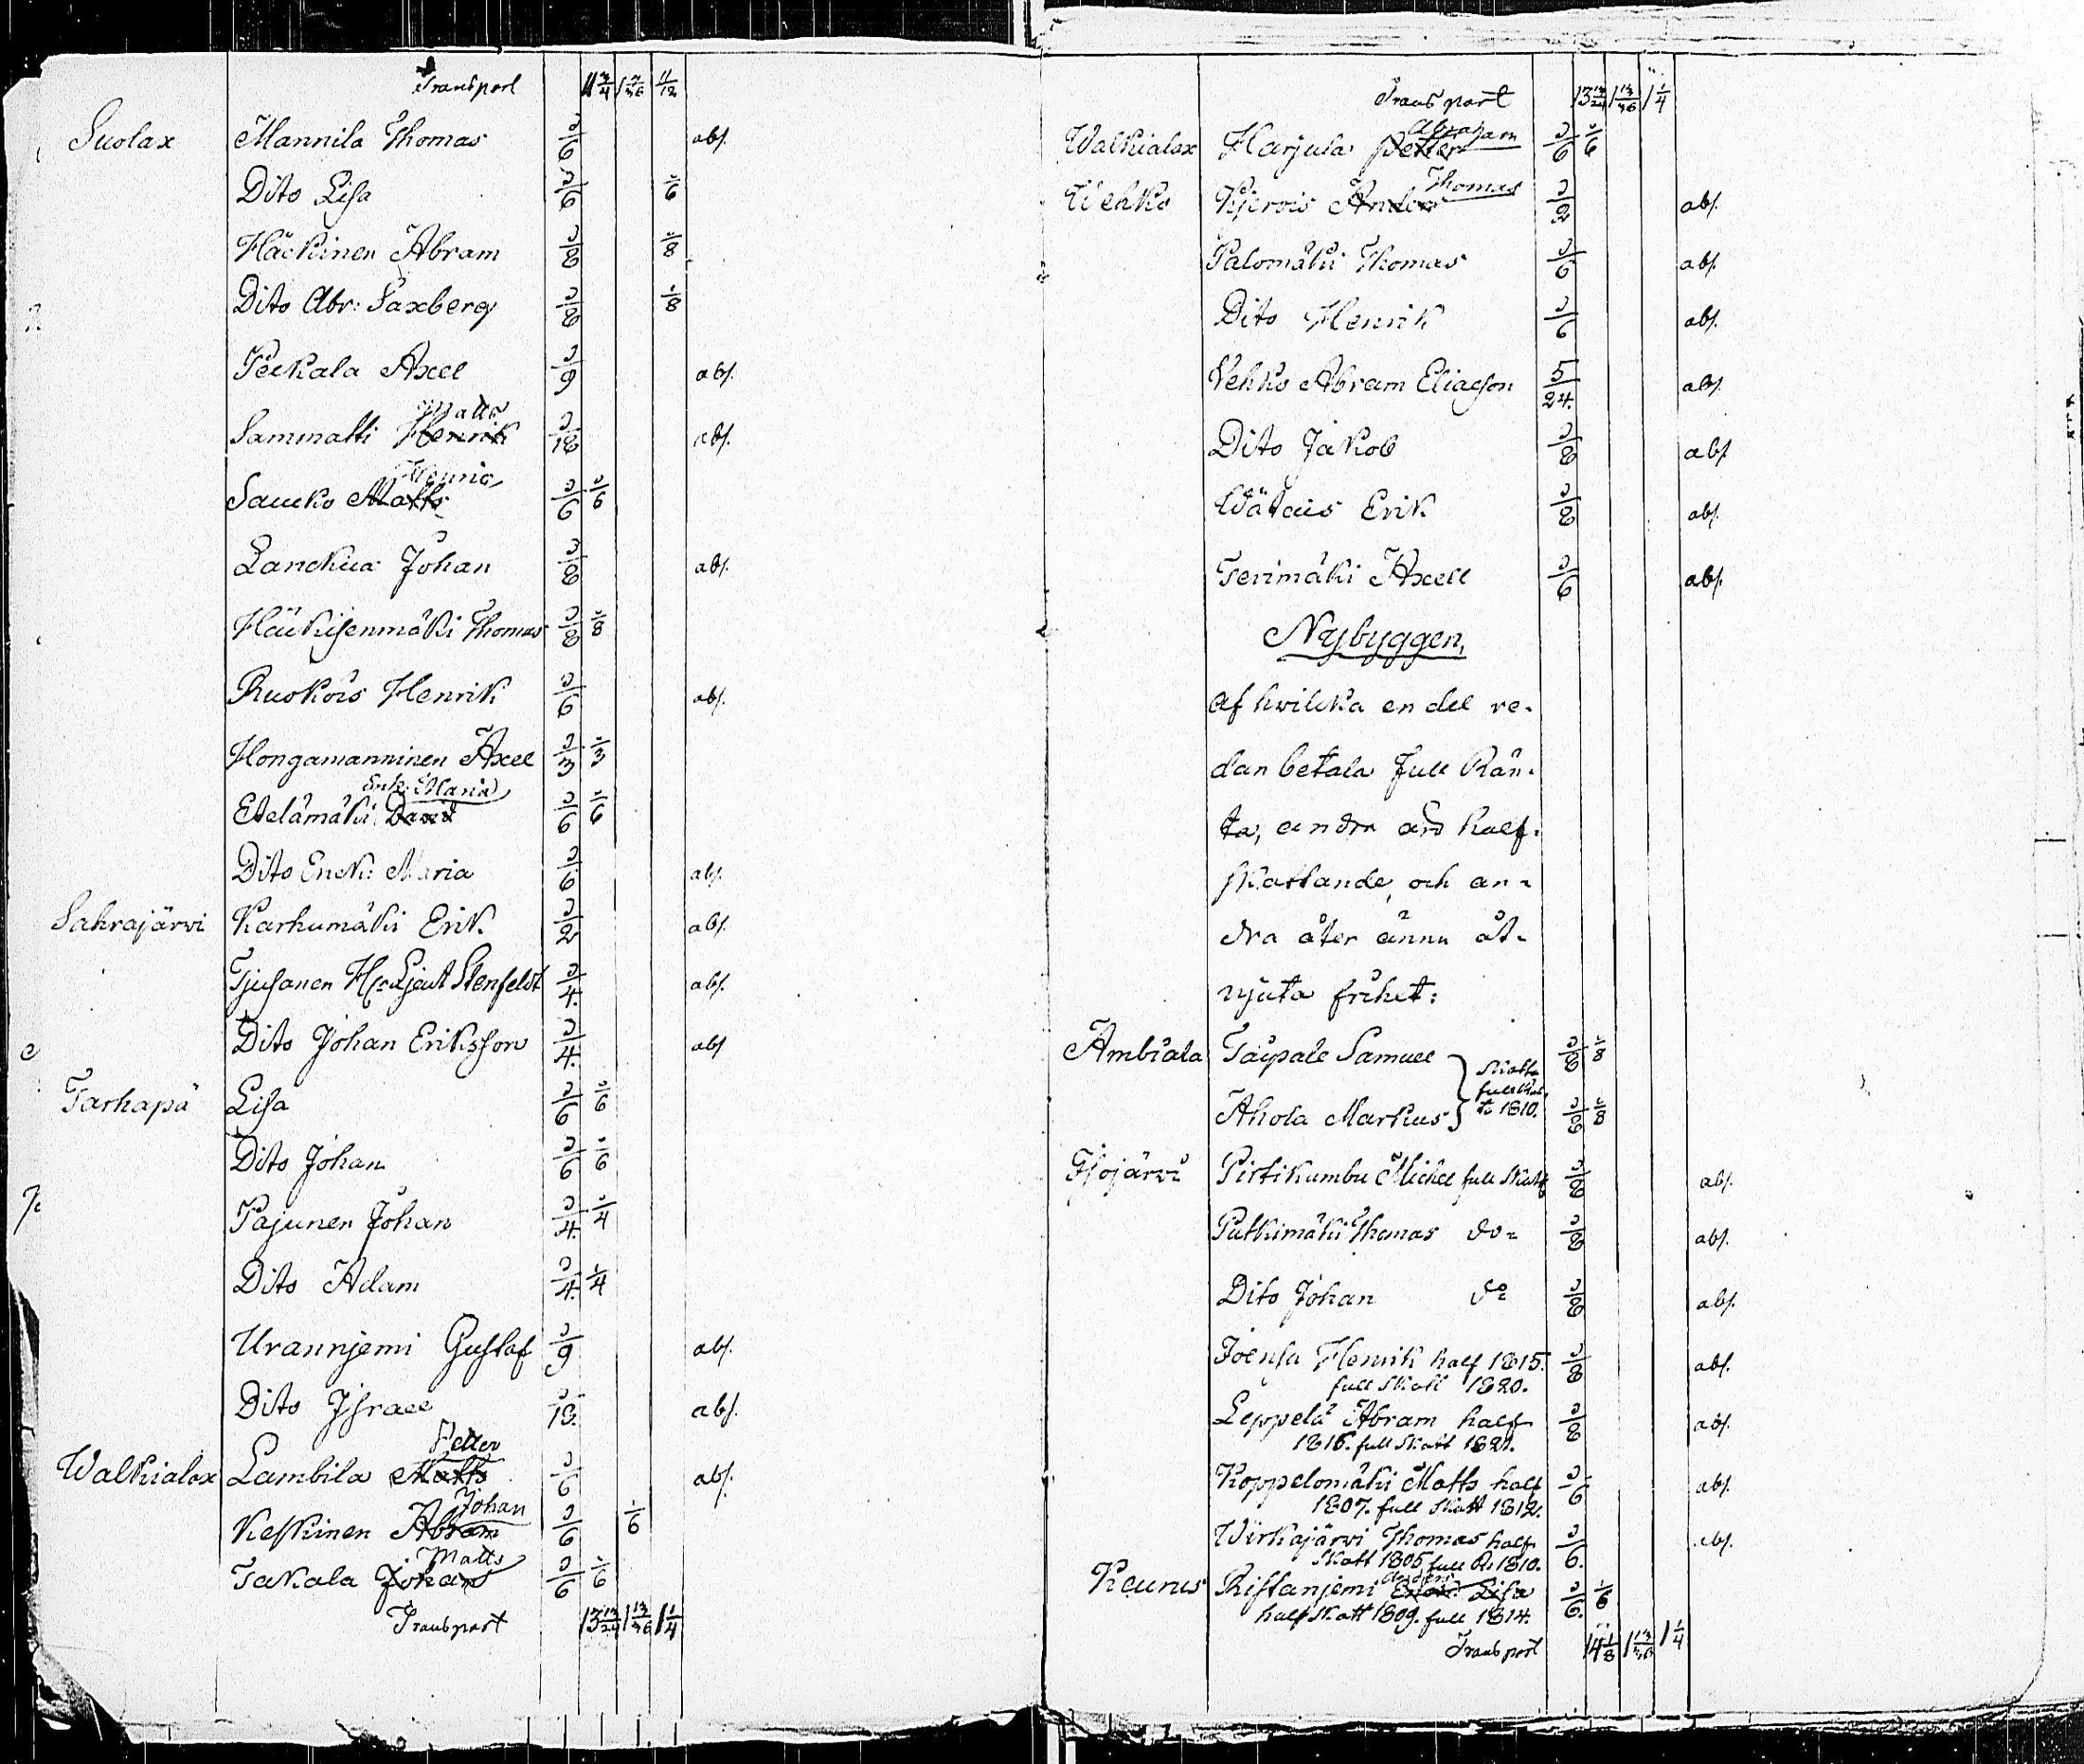 Transport 11 3/4 1 7/36 11/12
Suolax Mannila Thomas 1/6 abs.
Dito Lisa 1/6 1/6
Häckinen Abram 1/8 1/8
Dito Abr: Saxberg 1/8 1/8
Peckala Axel 1/9 abs.
Matts
Sammatti Henrik 1/18 abs.
Henric
Saucko Matts 1/6 1/6
Lanckua Johan 1/8 abs.
Häckisenmäki Thomas 1/8 1/8
Ruokois Henrik 1/6 abs.
Hongamanninen Axel 1/3 1/3
Enk: Maria
Etelämäki David 1/6 1/6
Dito Enck: Maria 1/6 abs.
Sahrajärvi Karhumäki Erik 1/2 abs.
Tjusanen Hr Ljeut Stenfeldt 1/4. abs.
Dito Johan Eriksson 1/4. abs
Tarhapä Lisa 1/6 1/6
Dito Johan 1/6 1/6
Pajunen Johan 1/4. 1/4
Dito Adam 1/4. 1/4
Urannjemi Gustaf 1/9 abs.
Dito Israel 1/18. abs.
Petter
Walkialax Lambila Matts 1/6 abs.
Johan
Keskinen Abram 1/6 1/6
Matts
Takala Johan 1/6 1/6
Transport 13 13/24 1 13/36 1 1/4
Transport 13 13/24 1 13/36 1 1/4
Abraham
Walkialax Harjula Petter 1/6 1/6
Thomas
Wehko Kjervis Anders 1/2 abs.
Palomäki Thomas 1/6 abs.
Dito Henrik 1/6 abs.
Vehko Abram Eliasson 5/24. abs.
Dito Jakob 1/8 abs
Wätäis Erik 1/8 abs.
Terimäki Axell 1/6 abs.
Nybyggen,
af hvilcka en del re-
dan betala full Rän-
ta, andra äro half-
skattande, och an-
dra åter ännu åt-
njuta frihet:
Ambiala Taipale Samuel 1/8 1/8
Skatta full Rän-
ta 1810.
Ahola Markus 1/8 1/8
Pirttikumbu Michel full Skatt 1/8 abs.
Putkimäki Thomas do- 1/8 abs.
Dito Johan do 1/8 abs.
Joensu Henrik half 1815. 1/8 abs.
full Skatt 1820.
Leppelä Abram half 1/8 abs.
1816. full Skatt 1821.
Koppelomäki Matts half 1/6 abs.
1807. full Skatt 1812.
Wirkajärvi Thomas half 1/6. abs.
Skatt 1805 full R. 1810.
Anders
Keurus Ristanjemi Enck: Lisa 1/6. 1/6
half Skatt 1809. full 1814.
Transport 14 1/8 1 13/36 1 1/4